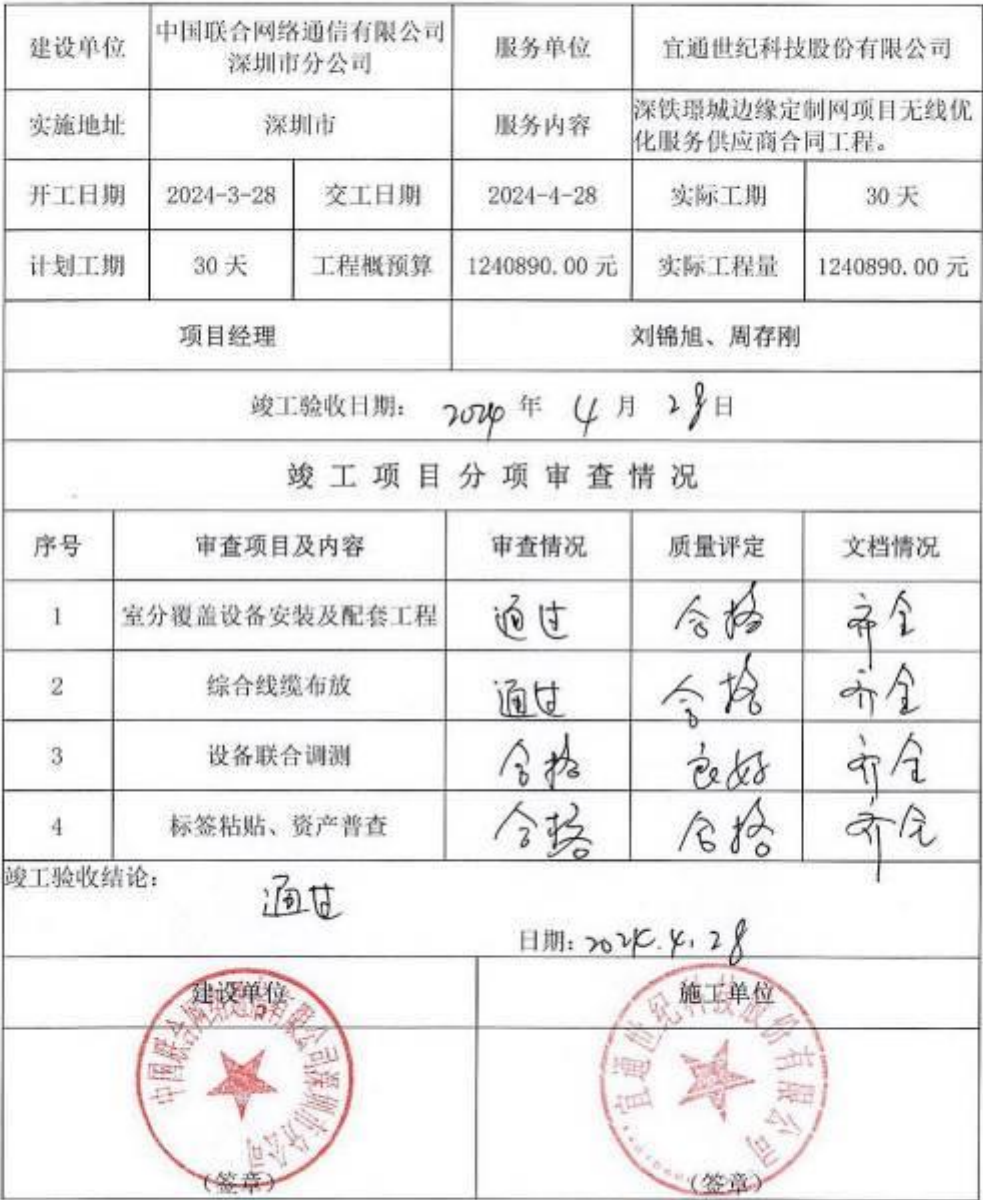 建设单位 中国联合网络通信有限公司深圳市分公司 服务单位 宜通世纪科技股份有限公司
实施地址 深圳市 服务内容 深铁璟城边缘定制网项目无线优化服务供应商合同工程。
开工日期 2024-3-28 交工日期 2024-4-28 实际工期 30天
计划工期 30天 工程概预算 1240890.00元 实际工程量 1240890.00元
项目经理 刘锦旭、周存刚
竣工验收日期: 2024年 4月 28日
竣工项目分项审查情况
序号 审查项目及内容 审查情况 质量评定 文档情况
1 室分覆盖设备安装及配套工程 通过 合格 齐全
2 综合线缆布放 通过 合格 齐全
3 设备联合调测 合格 良好 齐全
4 标签粘贴、资产普查 合格 合格 齐全
竣工验收结论:
通过
日期: 2024.4.28
建设单位 施工单位
中国联合网络通信有限公司深圳市分公司 宜通世纪科技股份有限公司
(签章) (签章)